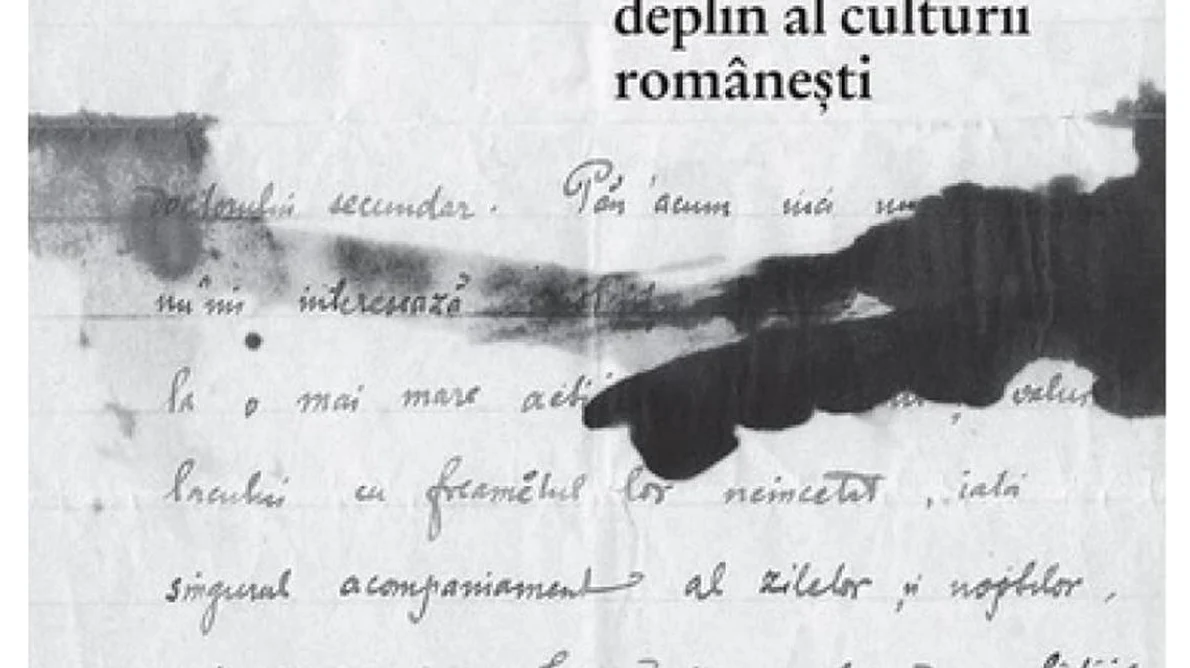 deplin al culturii
românești
doctorului secundar. Pân'acum nici
nu mă interesează
la o mai mare valur
lacului cu freamătul lor neîncetat, iată
singurul acompaniament al zilelor și nopților,